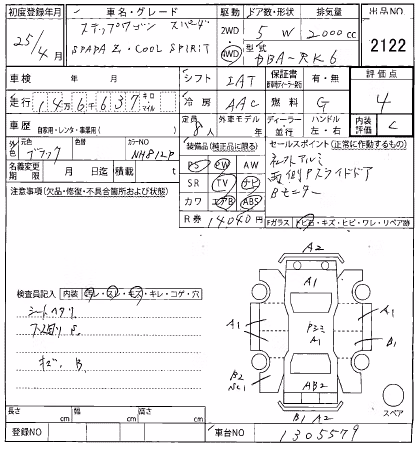 初度登録年月 車名・グレード 駆動 ドア数・形状 排気量 出品NO
25/4月 ステップワゴン スパーダ 2WD 5 W 2000cc 2122
SPADA Z. COOL SPIRIT 4WD 型式 DBA-RK6
車検 年 月 シフト IAT 保証書 有・無 評価点
走行 146637 キロ マイル 冷房 AAC 燃料 G 4
車歴 自家用・レンタ・事業用( ) 定員 8人 外車モデル 年 ディーラー 並行 ハンドル 左・右 内装評価 C
外色 元色 ブラック 色替 カラーNO NH812P 装備品(純正品に限る) セールスポイント(正常に作動するもの)
名義変更期限 月 日迄 積載 t PS PW
SR TV ナビ
注意事項(欠品・修復・不具合箇所および状態) カワ エアB ABS
両側Pスライドドア
Bモーター
R券 14040円 Fガラス トビ石・キズ・ヒビ・ワレ・リペア跡
A2
A1
検査員記入 内装 ヨレ・スレ・キズ・キレ・コゲ・穴
シートヘタリ
A1 A1
A1 B1
B2
AB2
B1 A2
スペア
長さ cm 幅 cm 高さ cm
登録NO 車台NO 1305579